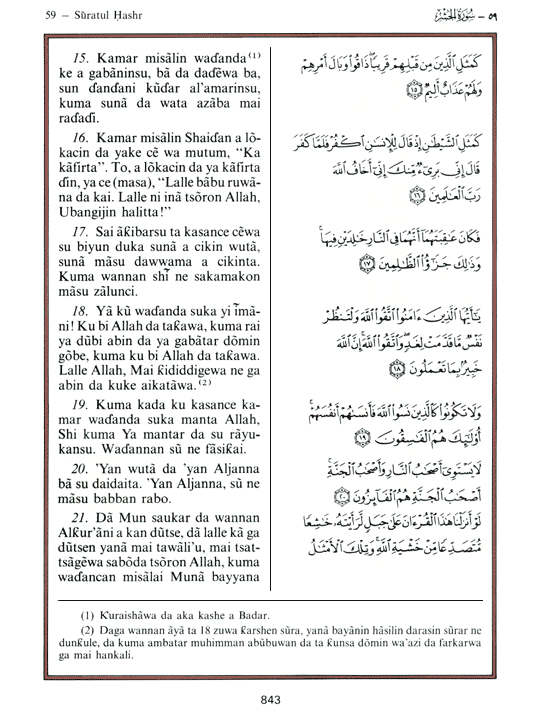 59 — Sūratul Ḥashr
٥٩ — سُورَةُ الحَشْرِ
15. Kamar misālin waɗanda⁽¹⁾
ke a gabāninsu, bā da daɗēwa ba,
sun ɗanɗani kūɗar al'amarinsu,
kuma sunā da wata azāba mai
raɗaɗi.
16. Kamar misālin Shaiɗan a lō-
kacin da yake cē wa mutum, "Ka
kāfirta". To, a lōkacin da ya kāfirta
ɗin, ya ce (masa), "Lalle bābu ruwā-
na da kai. Lalle ni inā tsōron Allah,
Ubangijin halitta!"
17. Sai āƙibarsu ta kasance cēwa
su biyun duka sunā a cikin wutā,
sunā māsu dawwama a cikinta.
Kuma wannan shī ne sakamakon
māsu zālunci.
18. Yā kū waɗanda suka yi īmā-
ni! Ku bi Allah da taƙawa, kuma rai
ya dūbi abin da ya gabātar dōmin
gōbe, kuma ku bi Allah da taƙawa.
Lalle Allah, Mai ƙididdigewa ne ga
abin da kuke aikatāwa.⁽²⁾
19. Kuma kada ku kasance ka-
mar waɗanda suka manta Allah,
Shi kuma Ya mantar da su rāyu-
kansu. Waɗannan sū ne fāsiƙai.
20. 'Yan wutā da 'yan Aljanna
bā su daidaita. 'Yan Aljanna, sū ne
māsu babban rabo.
21. Dā Mun saukar da wannan
Alƙur'āni a kan dūtse, dā lalle kā ga
dūtsen yanā mai tawāli'u, mai tsat-
tsāgēwa sabōda tsōron Allah, kuma
waɗancan misālai Munā bayyana
كَمَثَلِ ٱلَّذِينَ مِن قَبْلِهِمْ قَرِيبًا ذَاقُوا۟ وَبَالَ أَمْرِهِمْ
وَلَهُمْ عَذَابٌ أَلِيمٌ ١٥
كَمَثَلِ ٱلشَّيْطَٰنِ إِذْ قَالَ لِلْإِنسَٰنِ ٱكْفُرْ فَلَمَّا كَفَرَ
قَالَ إِنِّى بَرِىٓءٌ مِّنكَ إِنِّىٓ أَخَافُ ٱللَّهَ
رَبَّ ٱلْعَٰلَمِينَ ١٦
فَكَانَ عَٰقِبَتَهُمَآ أَنَّهُمَا فِى ٱلنَّارِ خَٰلِدَيْنِ فِيهَا
وَذَٰلِكَ جَزَٰٓؤُا۟ ٱلظَّٰلِمِينَ ١٧
يَٰٓأَيُّهَا ٱلَّذِينَ ءَامَنُوا۟ ٱتَّقُوا۟ ٱللَّهَ وَلْتَنظُرْ
نَفْسٌ مَّا قَدَّمَتْ لِغَدٍ وَٱتَّقُوا۟ ٱللَّهَ إِنَّ ٱللَّهَ
خَبِيرٌۢ بِمَا تَعْمَلُونَ ١٨
وَلَا تَكُونُوا۟ كَٱلَّذِينَ نَسُوا۟ ٱللَّهَ فَأَنسَىٰهُمْ أَنفُسَهُمْ
أُو۟لَٰٓئِكَ هُمُ ٱلْفَٰسِقُونَ ١٩
لَا يَسْتَوِىٓ أَصْحَٰبُ ٱلنَّارِ وَأَصْحَٰبُ ٱلْجَنَّةِ
أَصْحَٰبُ ٱلْجَنَّةِ هُمُ ٱلْفَآئِزُونَ ٢٠
لَوْ أَنزَلْنَا هَٰذَا ٱلْقُرْءَانَ عَلَىٰ جَبَلٍ لَّرَأَيْتَهُۥ خَٰشِعًا
مُّتَصَدِّعًا مِّنْ خَشْيَةِ ٱللَّهِ وَتِلْكَ ٱلْأَمْثَٰلُ
(1) Ƙuraishāwa da aka kashe a Badar.
(2) Daga wannan āyā ta 18 zuwa ƙarshen sūra, yanā bayānin hāsilin darasin sūrar ne
dunƙule, da kuma ambatar muhimman abūbuwan da ta ƙunsa dōmin wa'azi da farkarwa
ga mai hankali.
843